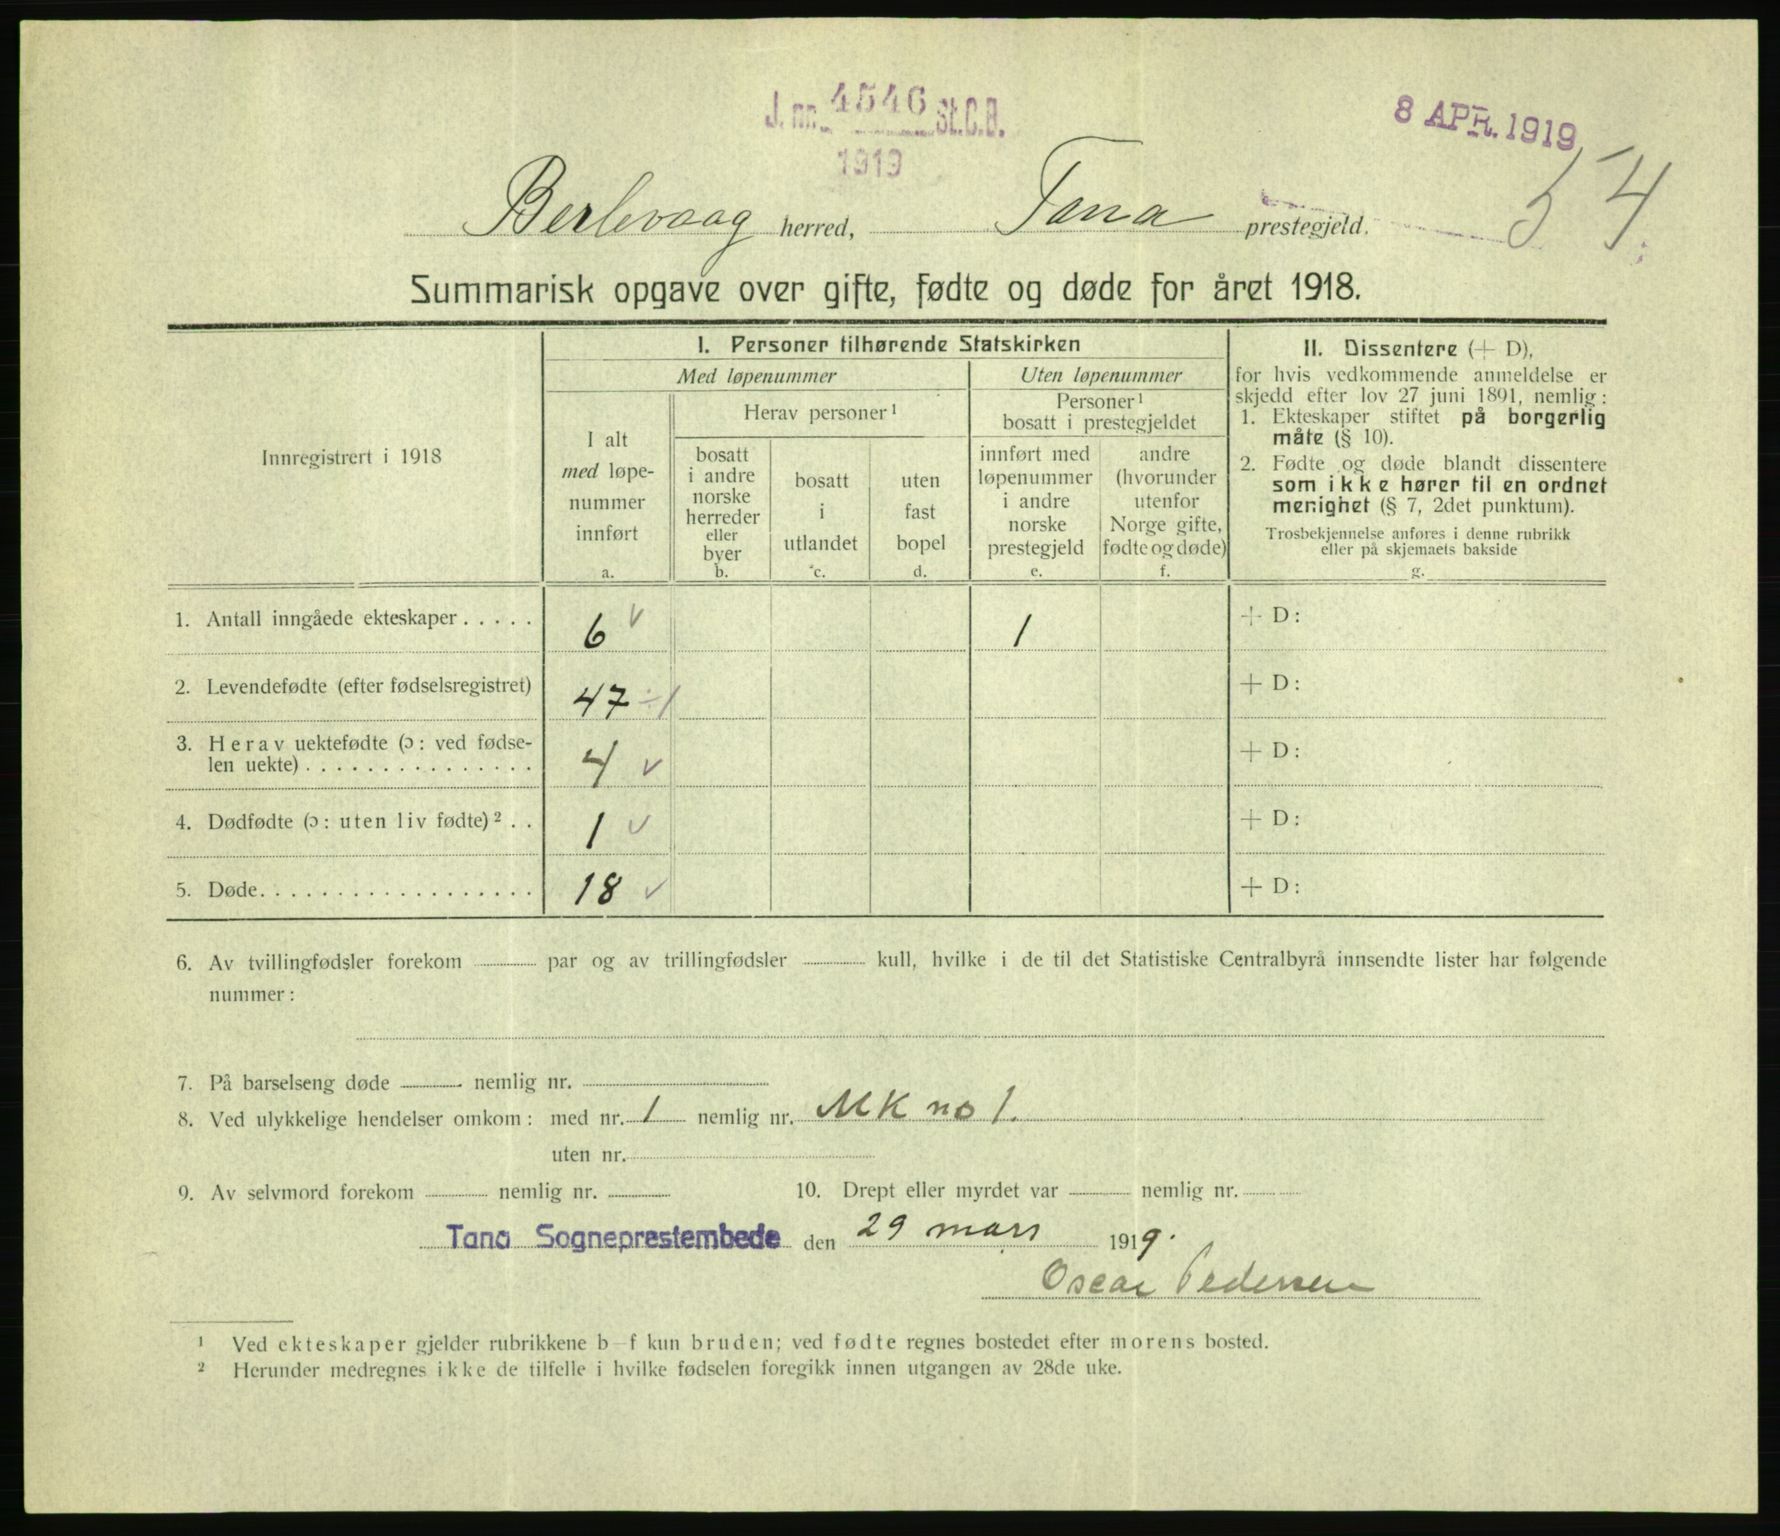 J. nr. 4546 St.C.B.
1919
8 APR. 1919
54
Berlevaag herred, Tana prestegjeld.
Summarisk opgave over gifte, fødte og døde for året 1918.
Innregistrert i 1918
I. Personer tilhørende Statskirken
Med løpenummer
Uten løpenummer
I alt
med løpe-
nummer
innført
a.
Herav personer ¹
bosatt
i andre
norske
herreder
eller
byer
b.
bosatt
i
utlandet
c.
uten
fast
bopel
d.
Personer ¹
bosatt i prestegjeldet
innført med
løpenummer
i andre
norske
prestegjeld
e.
andre
(hvorunder
utenfor
Norge gifte,
fødte og døde)
f.
II. Dissentere (+ D),
for hvis vedkommende anmeldelse er
skjedd efter lov 27 juni 1891, nemlig:
1. Ekteskaper stiftet på borgerlig
måte (§ 10).
2. Fødte og døde blandt dissentere
som ikke hører til en ordnet
menighet (§ 7, 2det punktum).
Trosbekjennelse anføres i denne rubrikk
eller på skjemaets bakside
g.
1. Antall inngåede ekteskaper . . . . . 6 √ 1 + D:
2. Levendefødte (efter fødselsregistret) 47 ÷1 + D:
3. Herav uektefødte (ɔ: ved fødse-
len uekte) . . . . . . . . . . . . . . . 4 √ + D:
4. Dødfødte (ɔ: uten liv fødte) ² . . 1 √ + D:
5. Døde. . . . . . . . . . . . . . . . . . 18 √ + D:
6. Av tvillingfødsler forekom par og av trillingfødsler kull, hvilke i de til det Statistiske Centralbyrå innsendte lister har følgende
nummer:
7. På barselseng døde nemlig nr.
8. Ved ulykkelige hendelser omkom: med nr. 1 nemlig nr. MK no 1.
uten nr.
9. Av selvmord forekom nemlig nr. 10. Drept eller myrdet var nemlig nr.
Tana Sogneprestembede den 29 mars 1919.
Oscar Pedersen
¹ Ved ekteskaper gjelder rubrikkene b–f kun bruden; ved fødte regnes bostedet efter morens bosted.
² Herunder medregnes ikke de tilfelle i hvilke fødselen foregikk innen utgangen av 28de uke.